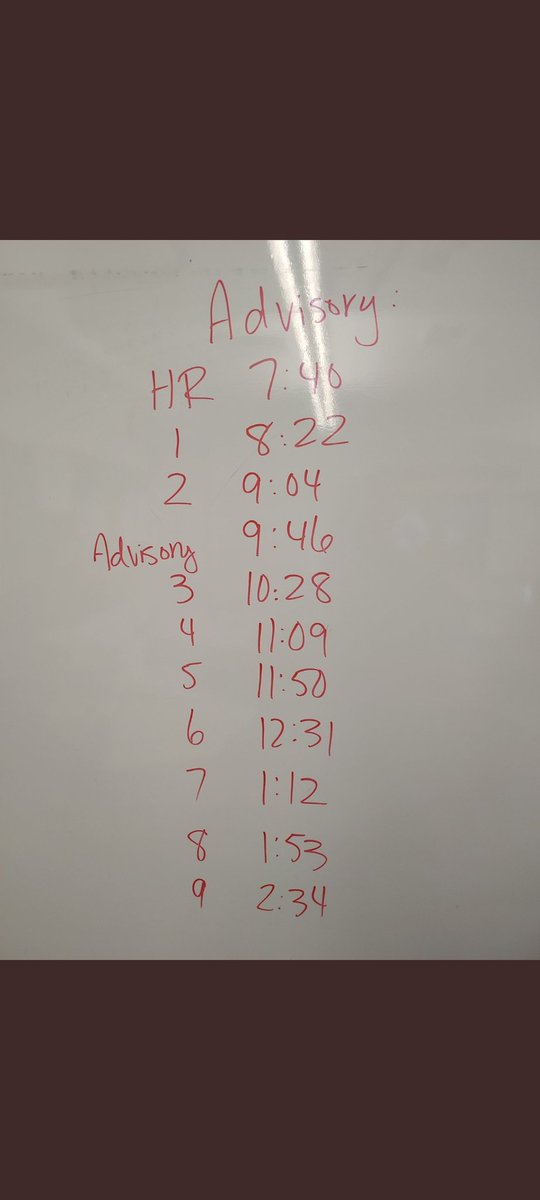 Advisory:
HR 7:40
1 8:22
2 9:04
Advisory 9:46
3 10:28
4 11:09
5 11:50
6 12:31
7 1:12
8 1:53
9 2:34